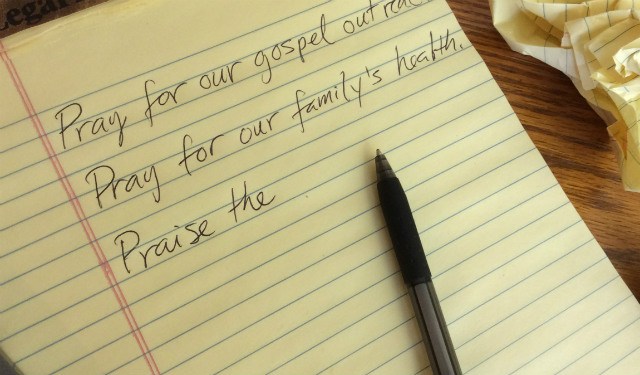 Pray for our gospel
Pray for our family's health.
Praise the